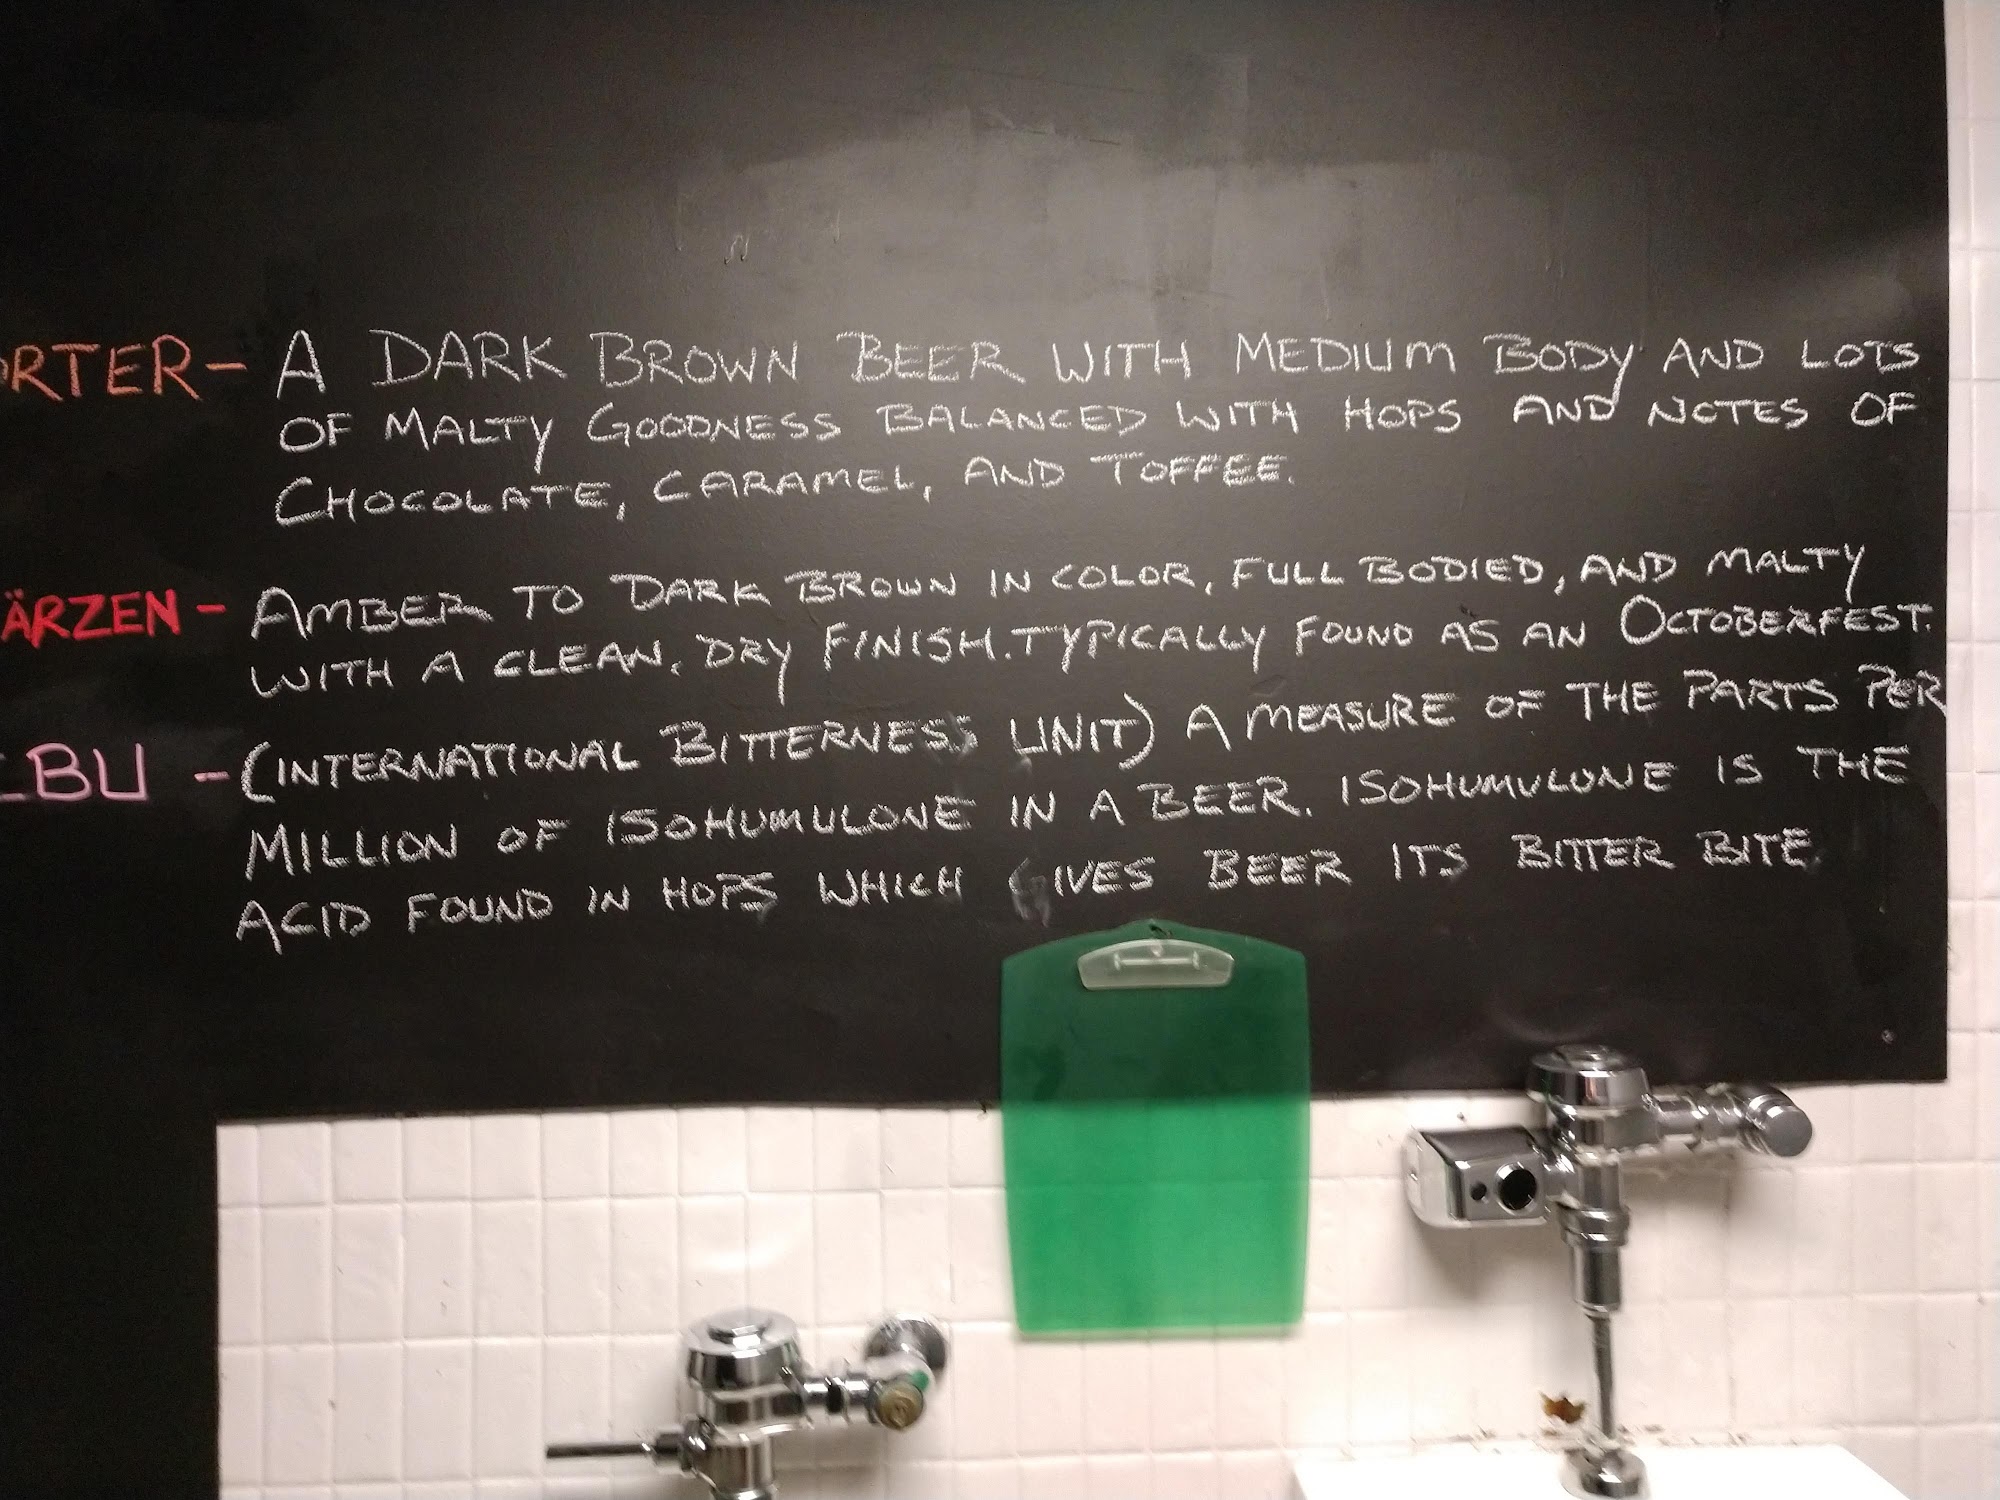 ORTER - A DARK BROWN BEER WITH MEDIUM BODY AND LOTS
OF MALTY GOODNESS BALANCED WITH HOPS AND NOTES OF
CHOCOLATE, CARAMEL, AND TOFFEE.
ÄRZEN - AMBER TO DARK BROWN IN COLOR, FULL BODIED, AND MALTY
WITH A CLEAN, DRY FINISH. TYPICALLY FOUND AS AN OCTOBERFEST.
IBU - (INTERNATIONAL BITTERNESS UNIT) A MEASURE OF THE PARTS PER
MILLION OF ISOHUMULONE IN A BEER. ISOHUMULONE IS THE
ACID FOUND IN HOPS WHICH GIVES BEER ITS BITTER BITE